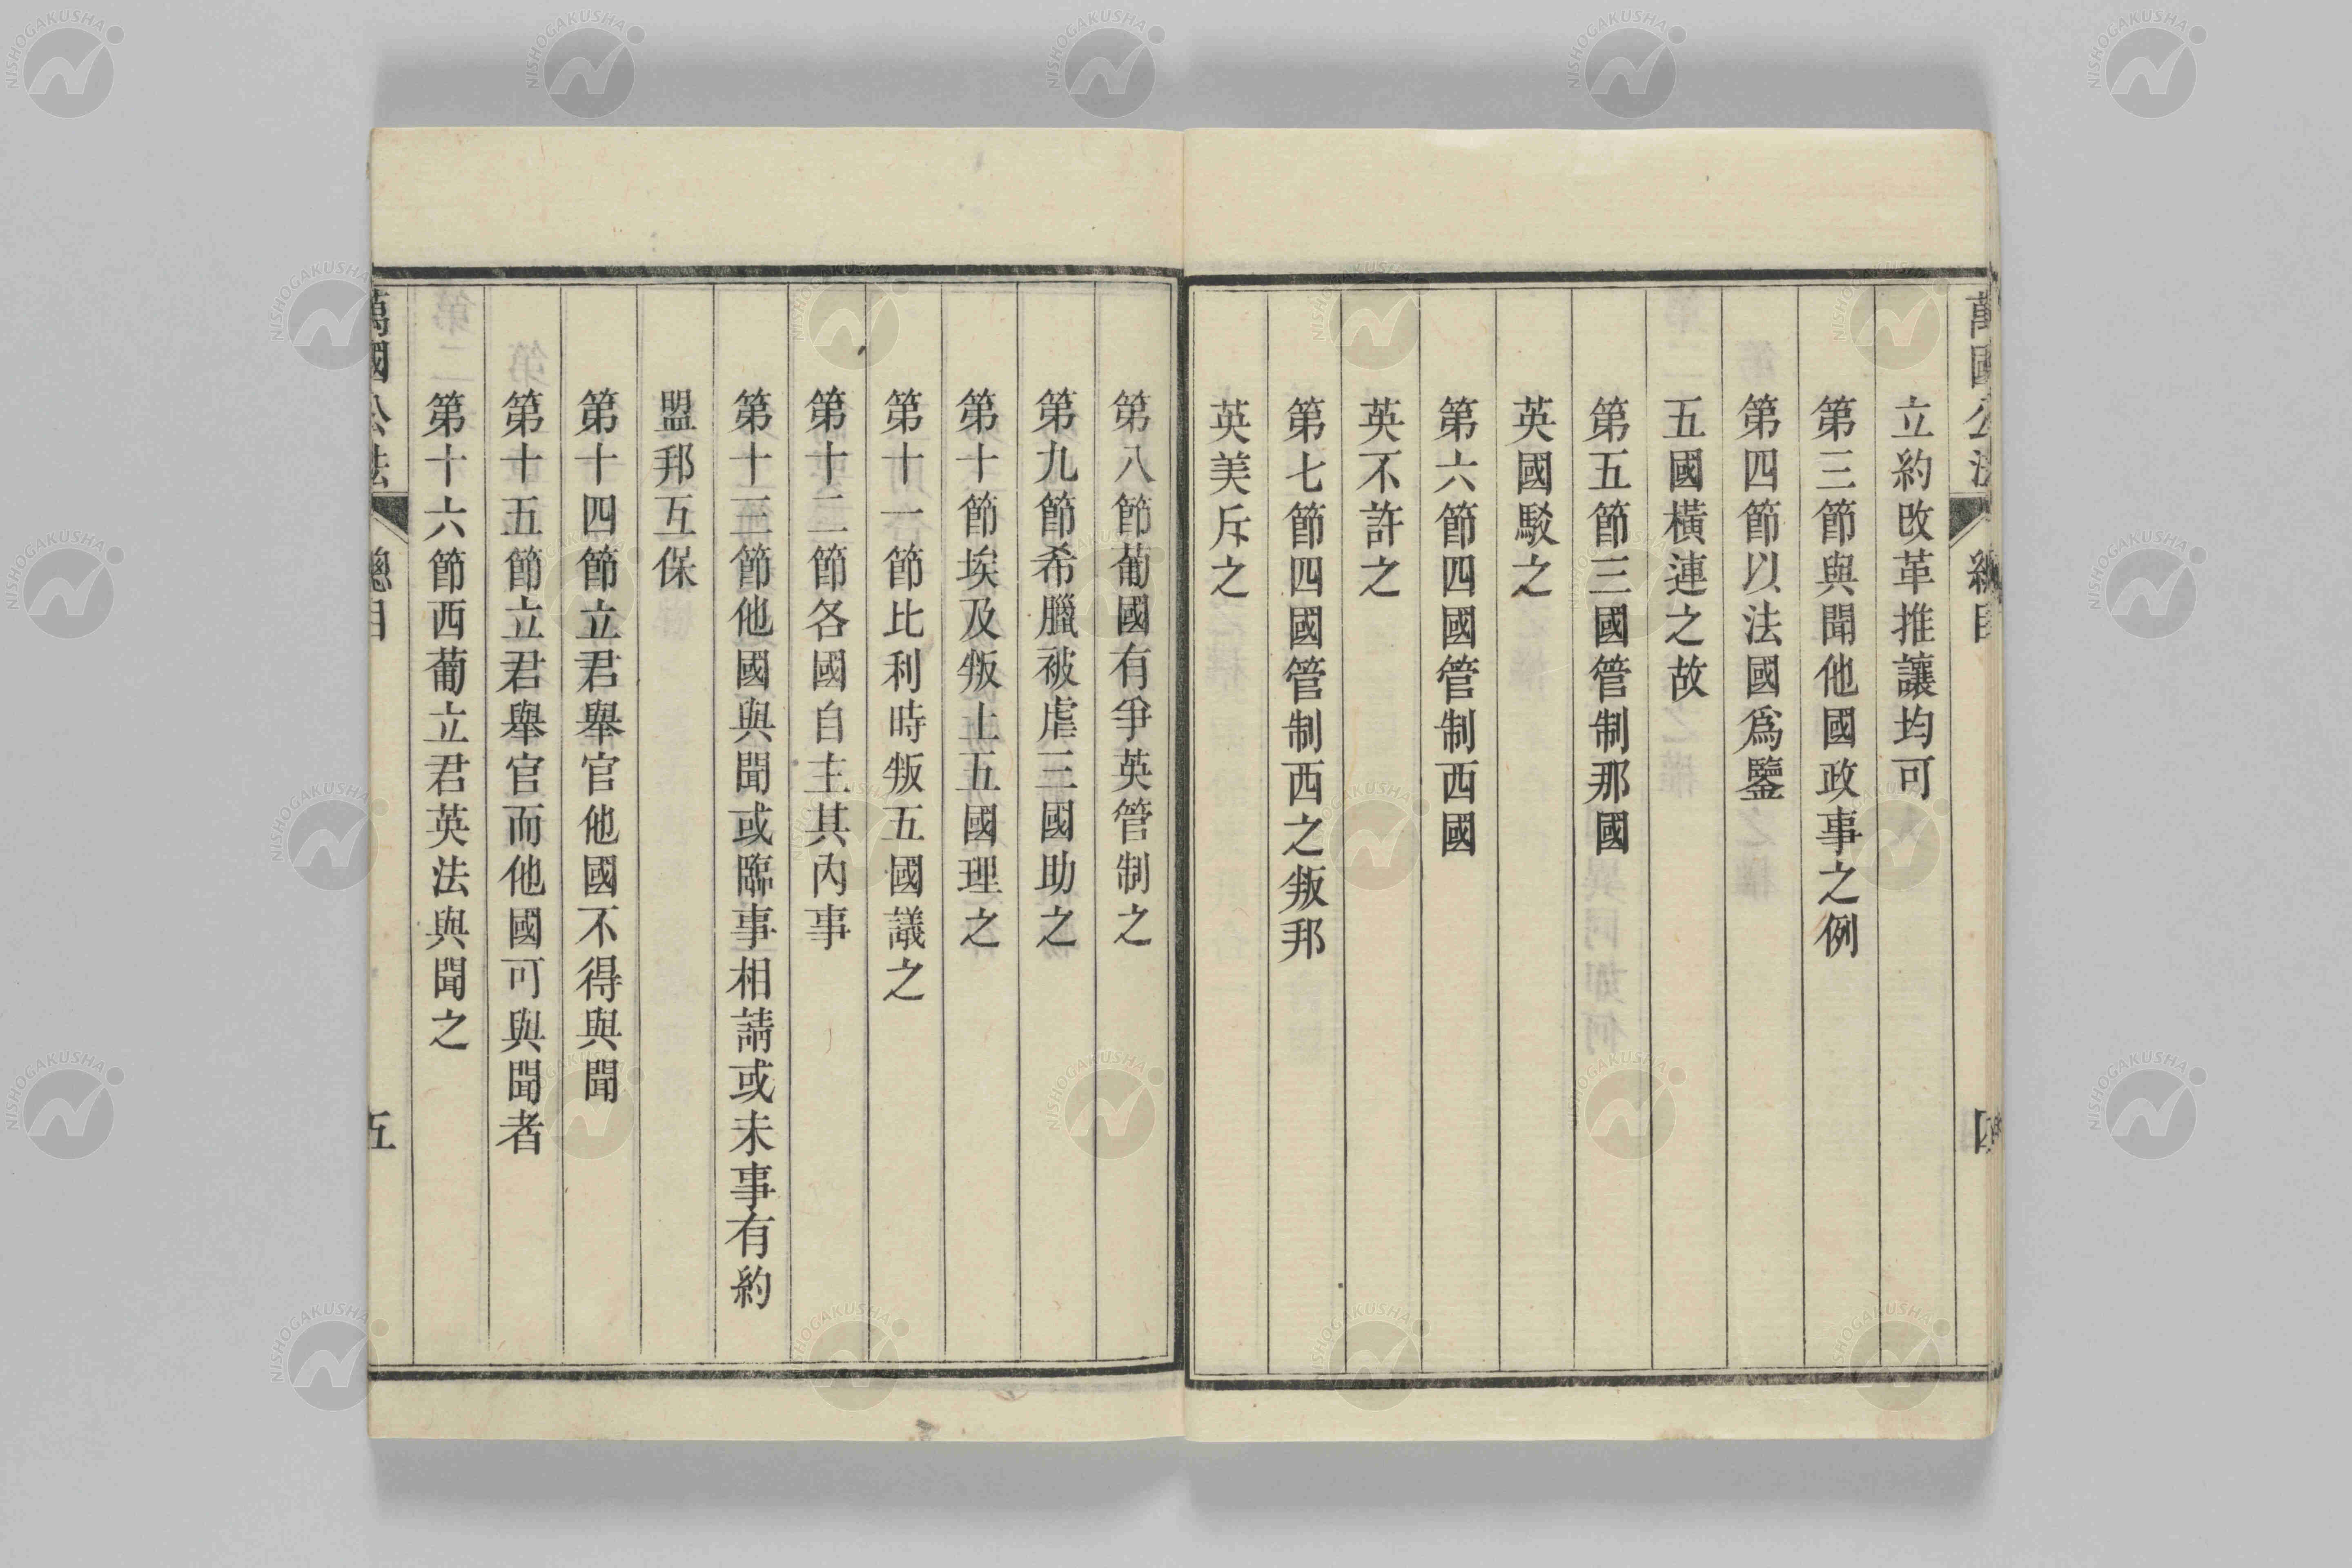 萬國公法 總目 四
立約改革推讓均可
第三節與聞他國政事之例
第四節以法國爲鑒
五國橫連之故
第五節三國管制那國
英國駁之
第六節四國管制西國
英不許之
第七節四國管制西之叛邦
英美斥之
第八節葡國有爭英管制之
第九節希臘被虐三國助之
第十節埃及叛土五國理之
第十一節比利時叛五國議之
第十二節各國自主其內事
第十三節他國與聞或臨事相請或未事有約
盟邦互保
第十四節立君舉官他國不得與聞
第十五節立君舉官而他國可與聞者
第十六節西葡立君英法與聞之
萬國公法 總目 五
NISHOGAKUSHA